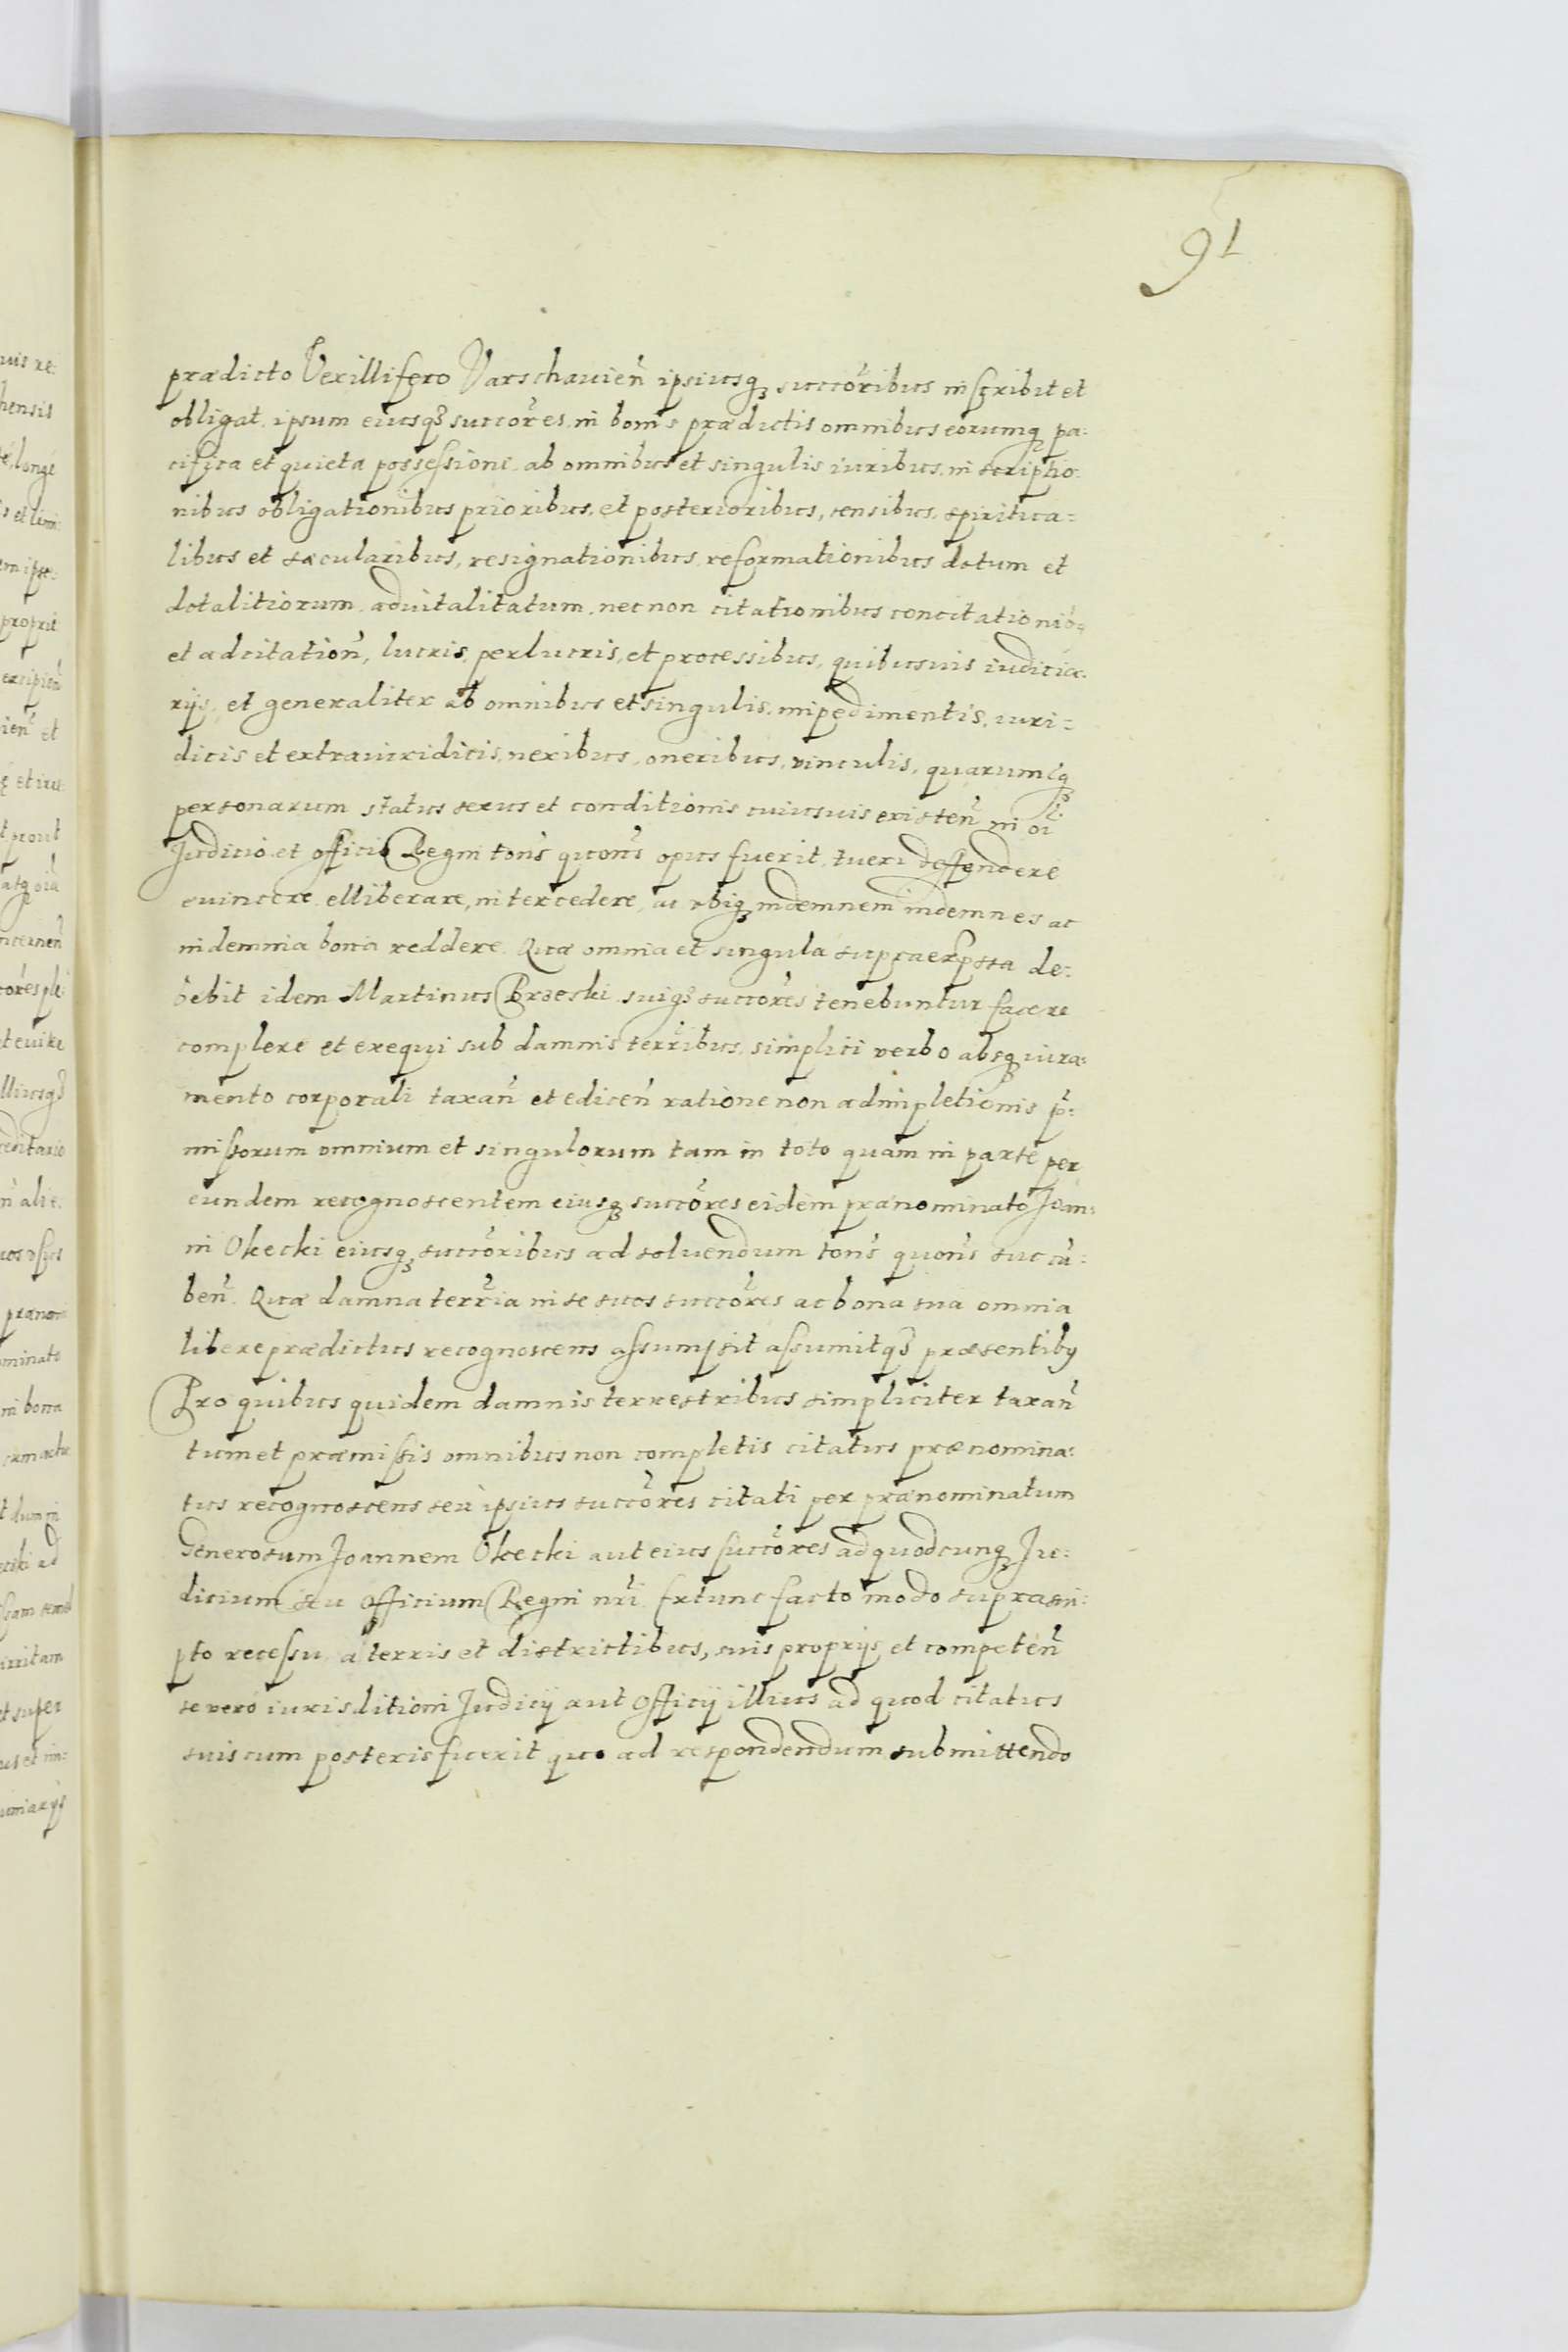 91
prædicto Vexillifero Varschauien̄ ipsiusq₃ succōribus inscribit et
obligat. ipsum eiusq₃ succōres. in bonis prædictis omnibus eorumq₃ pa:
cifica et quieta possessione. ab omnibus et singulis iuribus, inscriptio:
nibus obligationibus prioribus, et posterioribus, censibus, spiritua=
libus et sæcularibus, resignationibus reformationibus dotum et
dotalitiorum aduitalitatum. nec non citationibus concitationiō=
et adcitation̄, lucris, perlucris, et processibus, quibusuis iudicia:
rijs, et generaliter ab omnibus et singulis. impedimentis. iuri=
dicis et extraiuridicis, nexibus, oneribus, vinculis, quarumq₃
personarum status sexus et conditionis cuiusuis existen̄ in oī
Judicio et officio Regni tons̄ quons̄ opus fuerit, tueri deffendere
euincere. elliberare, intercedere, ac vbiq₃ indemnem indemnes ac
indemnia bona reddere. Quæ omnia et singula supraexp̄ssa de:
bebit idem Martinus Brzeski suiq₃ succōres tenebuntur facere
complere et exequi sub damnis terr̄ibus, simplici verbo absq₃ iura:
mento corporali taxan̄ et edicen̄ ratione non adimpletionis p̄:
missorum omnium et singulorum tam in toto quàm in parte per
eundem recognoscentem eiusq₃ succōres eidem prænominato Joan:
ni Okecki eiusq₃ succōribus ad soluendum tons̄ quons̄ succū:
ben̄. Quæ damna terr̄ia in se suos succōres ac bona sua omnia
libere prædictus recognoscens assumpsit assumitq₃ præsentibꝰ
Pro quibus quidem damnis terrestribus simpliciter taxan̄
tum et præmissis omnibus non completis citatus prænomina:
tus recognoscens seù ipsius succōres citati per prænominatum
Generosum Joannem Okecki aut eius succōres ad quodcunq₃ Ju:
dicium seu Officium Regni nr̄i. Extunc facto modo suprascri:
pto recessu à terris et districtibus, suis proprijs et competen̄
se verò iurisditioni Judicij aut Officij illius ad quod citatus
suis cum posteris fuerit quo ad respondendum submittendo